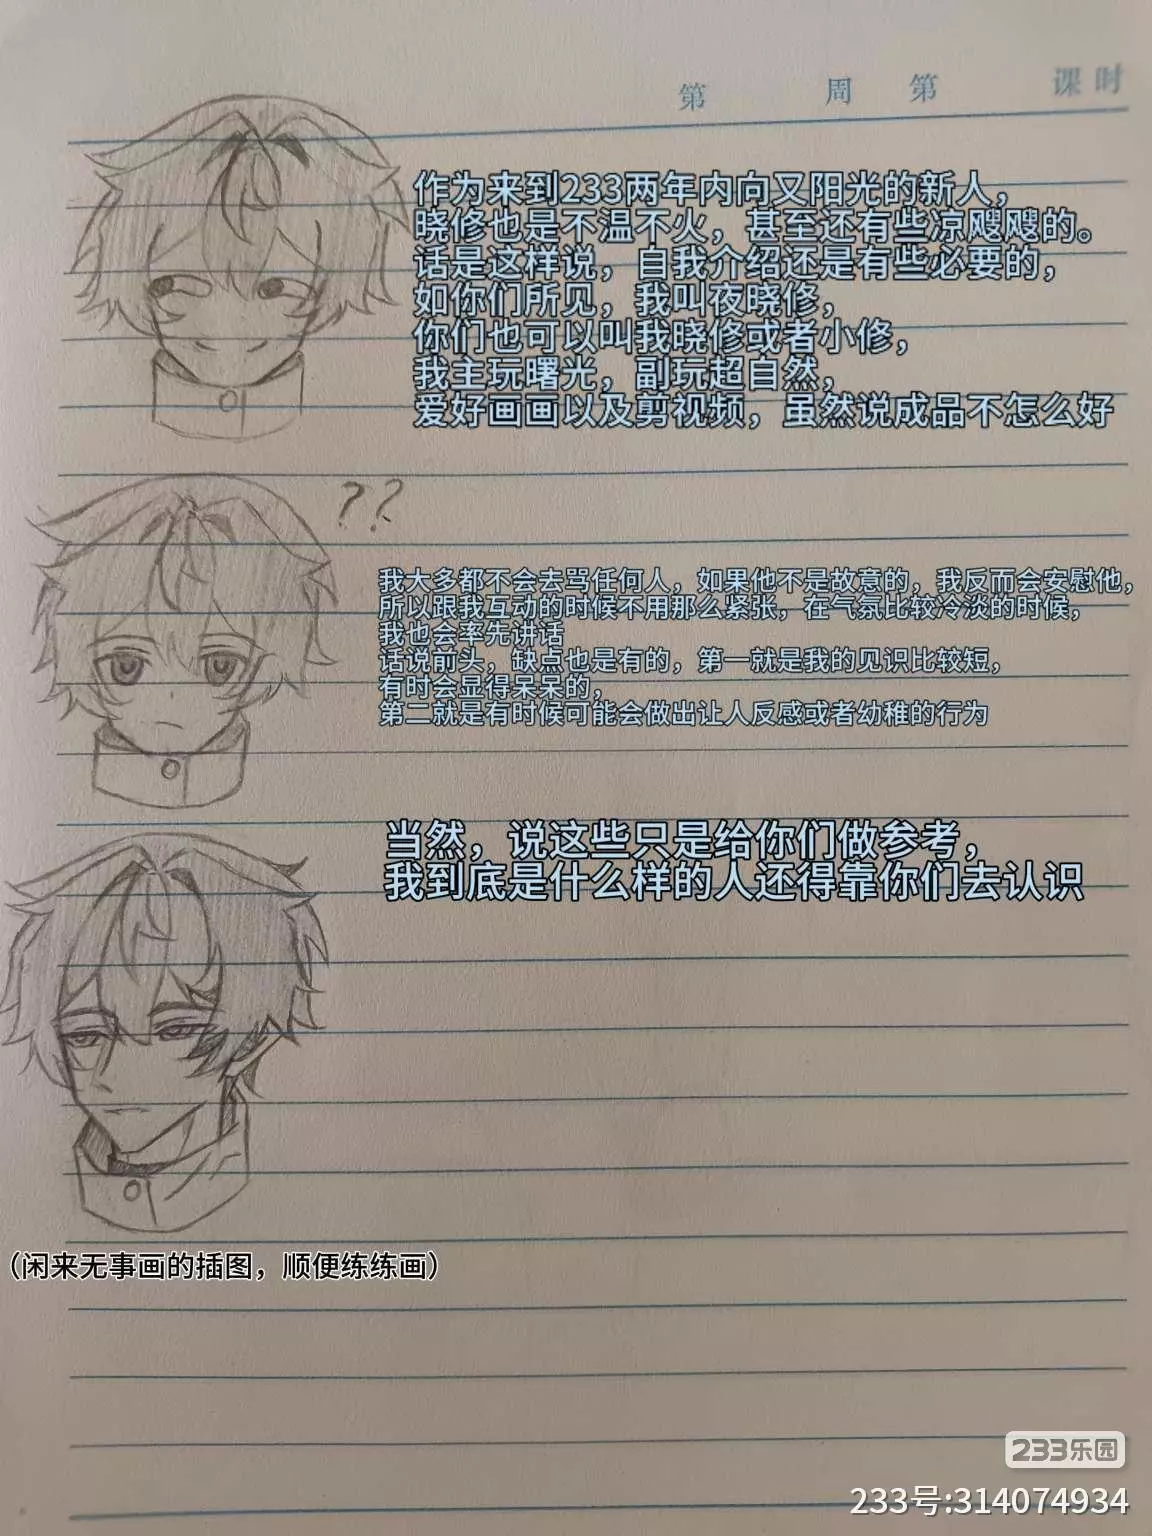 第 周 第 课时
作为来到233两年内向又阳光的新人，
晓修也是不温不火，甚至还有些凉飕飕的。
话是这样说，自我介绍还是有些必要的，
如你们所见，我叫夜晓修，
你们也可以叫我晓修或者小修，
我主玩曙光，副玩超自然，
爱好画画以及剪视频，虽然说成品不怎么好
??
我大多都不会去骂任何人，如果他不是故意的，我反而会安慰他，
所以跟我互动的时候不用那么紧张，在气氛比较冷淡的时候，
我也会率先讲话
话说前头，缺点也是有的，第一就是我的见识比较短，
有时会显得呆呆的，
第二就是有时候可能会做出让人反感或者幼稚的行为
当然，说这些只是给你们做参考，
我到底是什么样的人还得靠你们去认识
（闲来无事画的插图，顺便练练画）
233乐园
233号:314074934